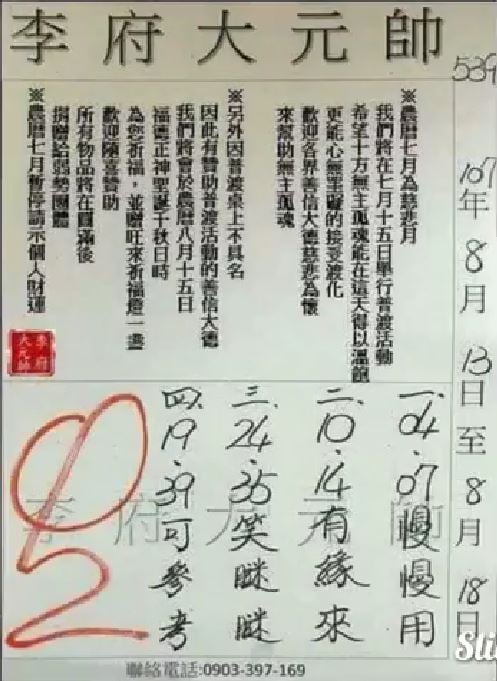 李府大元帥
539
107年8月13日至8月18日
※農曆七月為慈悲月
我們將於七月十五日舉行普渡活動
希望十方無主孤魂能在這天得以溫飽
更能心無罣礙的接受渡化
歡迎各界善信大德慈悲為懷
來幫助無主孤魂
※另外因普渡桌上不具名
因此有贊助普渡活動的善信大德
我們將會於農曆八月十五日
福德正神聖誕千秋日時
為您祈福，並贈旺來祈福燈一盞
歡迎隨喜贊助
所有物品將在圓滿後
捐贈給弱勢團體
※農曆七月暫停請示個人財運
李府
大元帥
一.04.07慢慢用
二.10.14有緣來
三.24.35笑瞇瞇
四.19.39可參考
李府大元帥
聯絡電話:0903-397-169